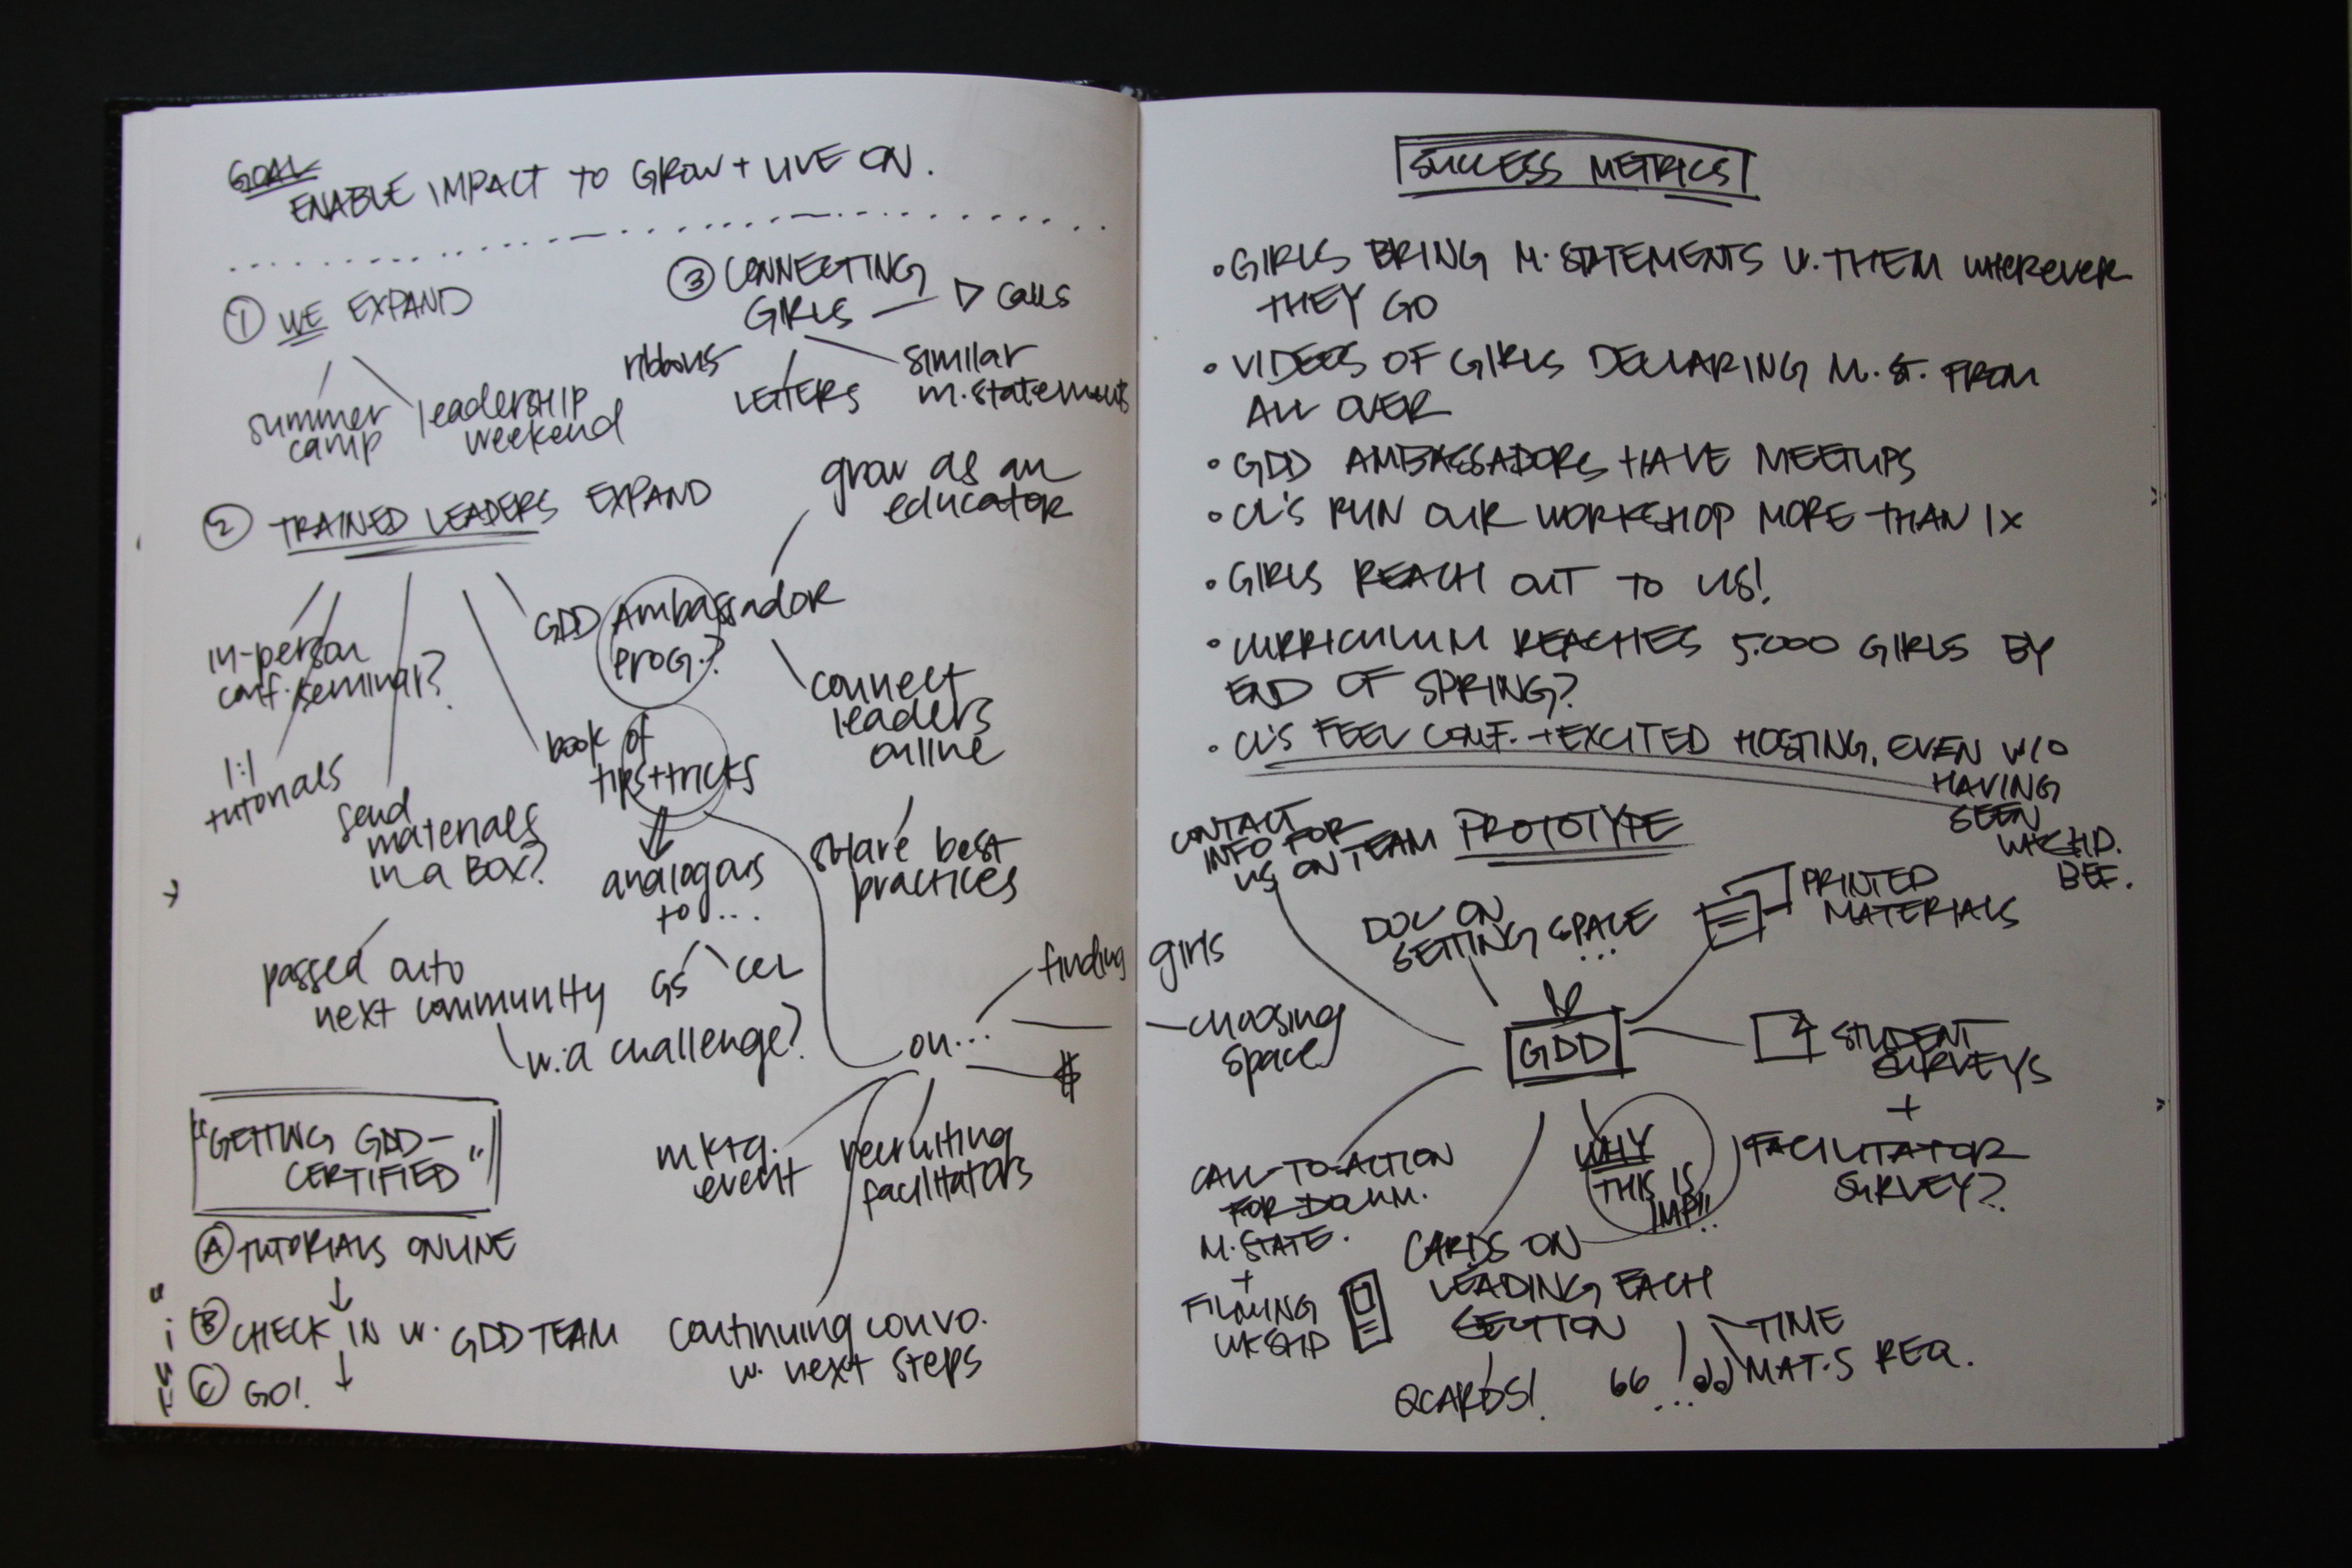 GOAL
ENABLE IMPACT TO GROW + LIVE ON.
① WE EXPAND
summer
camp
leadership
weekend
③ CONNECTING
GIRLS
calls
ribbons
LETTERS
similar
m.statements
② TRAINED LEADERS EXPAND
in-person
conf./seminar?
1:1
tutorials
send
materials
in a BOX?
passed onto
next community
w. a challenge?
book of
tips + tricks
analogous
to...
GS
CCL
GDD Ambassador
PROG.?
grow as an
educator
connect
leaders
online
share best
practices
on...
finding girls
choosing
space
$
mktg.
event
recruiting
facilitators
continuing convo.
w. next steps
"GETTING GDD-
CERTIFIED"
Ⓐ TUTORIALS ONLINE
Ⓑ CHECK IN W. GDD TEAM
Ⓒ GO!
SUCCESS METRICS
• GIRLS BRING M. STATEMENTS W. THEM WHEREVER
THEY GO
• VIDEOS OF GIRLS DECLARING M. ST. FROM
ALL OVER
• GDD AMBASSADORS HAVE MEETUPS
• CL'S RUN OUR WORKSHOP MORE THAN 1X
• GIRLS REACH OUT TO US!
• CURRICULUM REACHES 5,000 GIRLS BY
END OF SPRING?
• CL'S FEEL CONF. + EXCITED HOSTING, EVEN W/O
HAVING
SEEN
WKSHP.
BEF.
PROTOTYPE
CONTACT
INFO FOR
US ON TEAM
DOC ON
SETTING SPACE
...
PRINTED
MATERIALS
GDD
STUDENT
SURVEYS
+
FACILITATOR
SURVEY?
WHY
THIS IS
IMP!!
CALL-TO-ACTION
FOR DOCUM.
M. STATE.
+
FILMING
WKSHP
CARDS ON
LEADING EACH
SECTION
QCARDS!
"...."
TIME
MAT.S REQ.